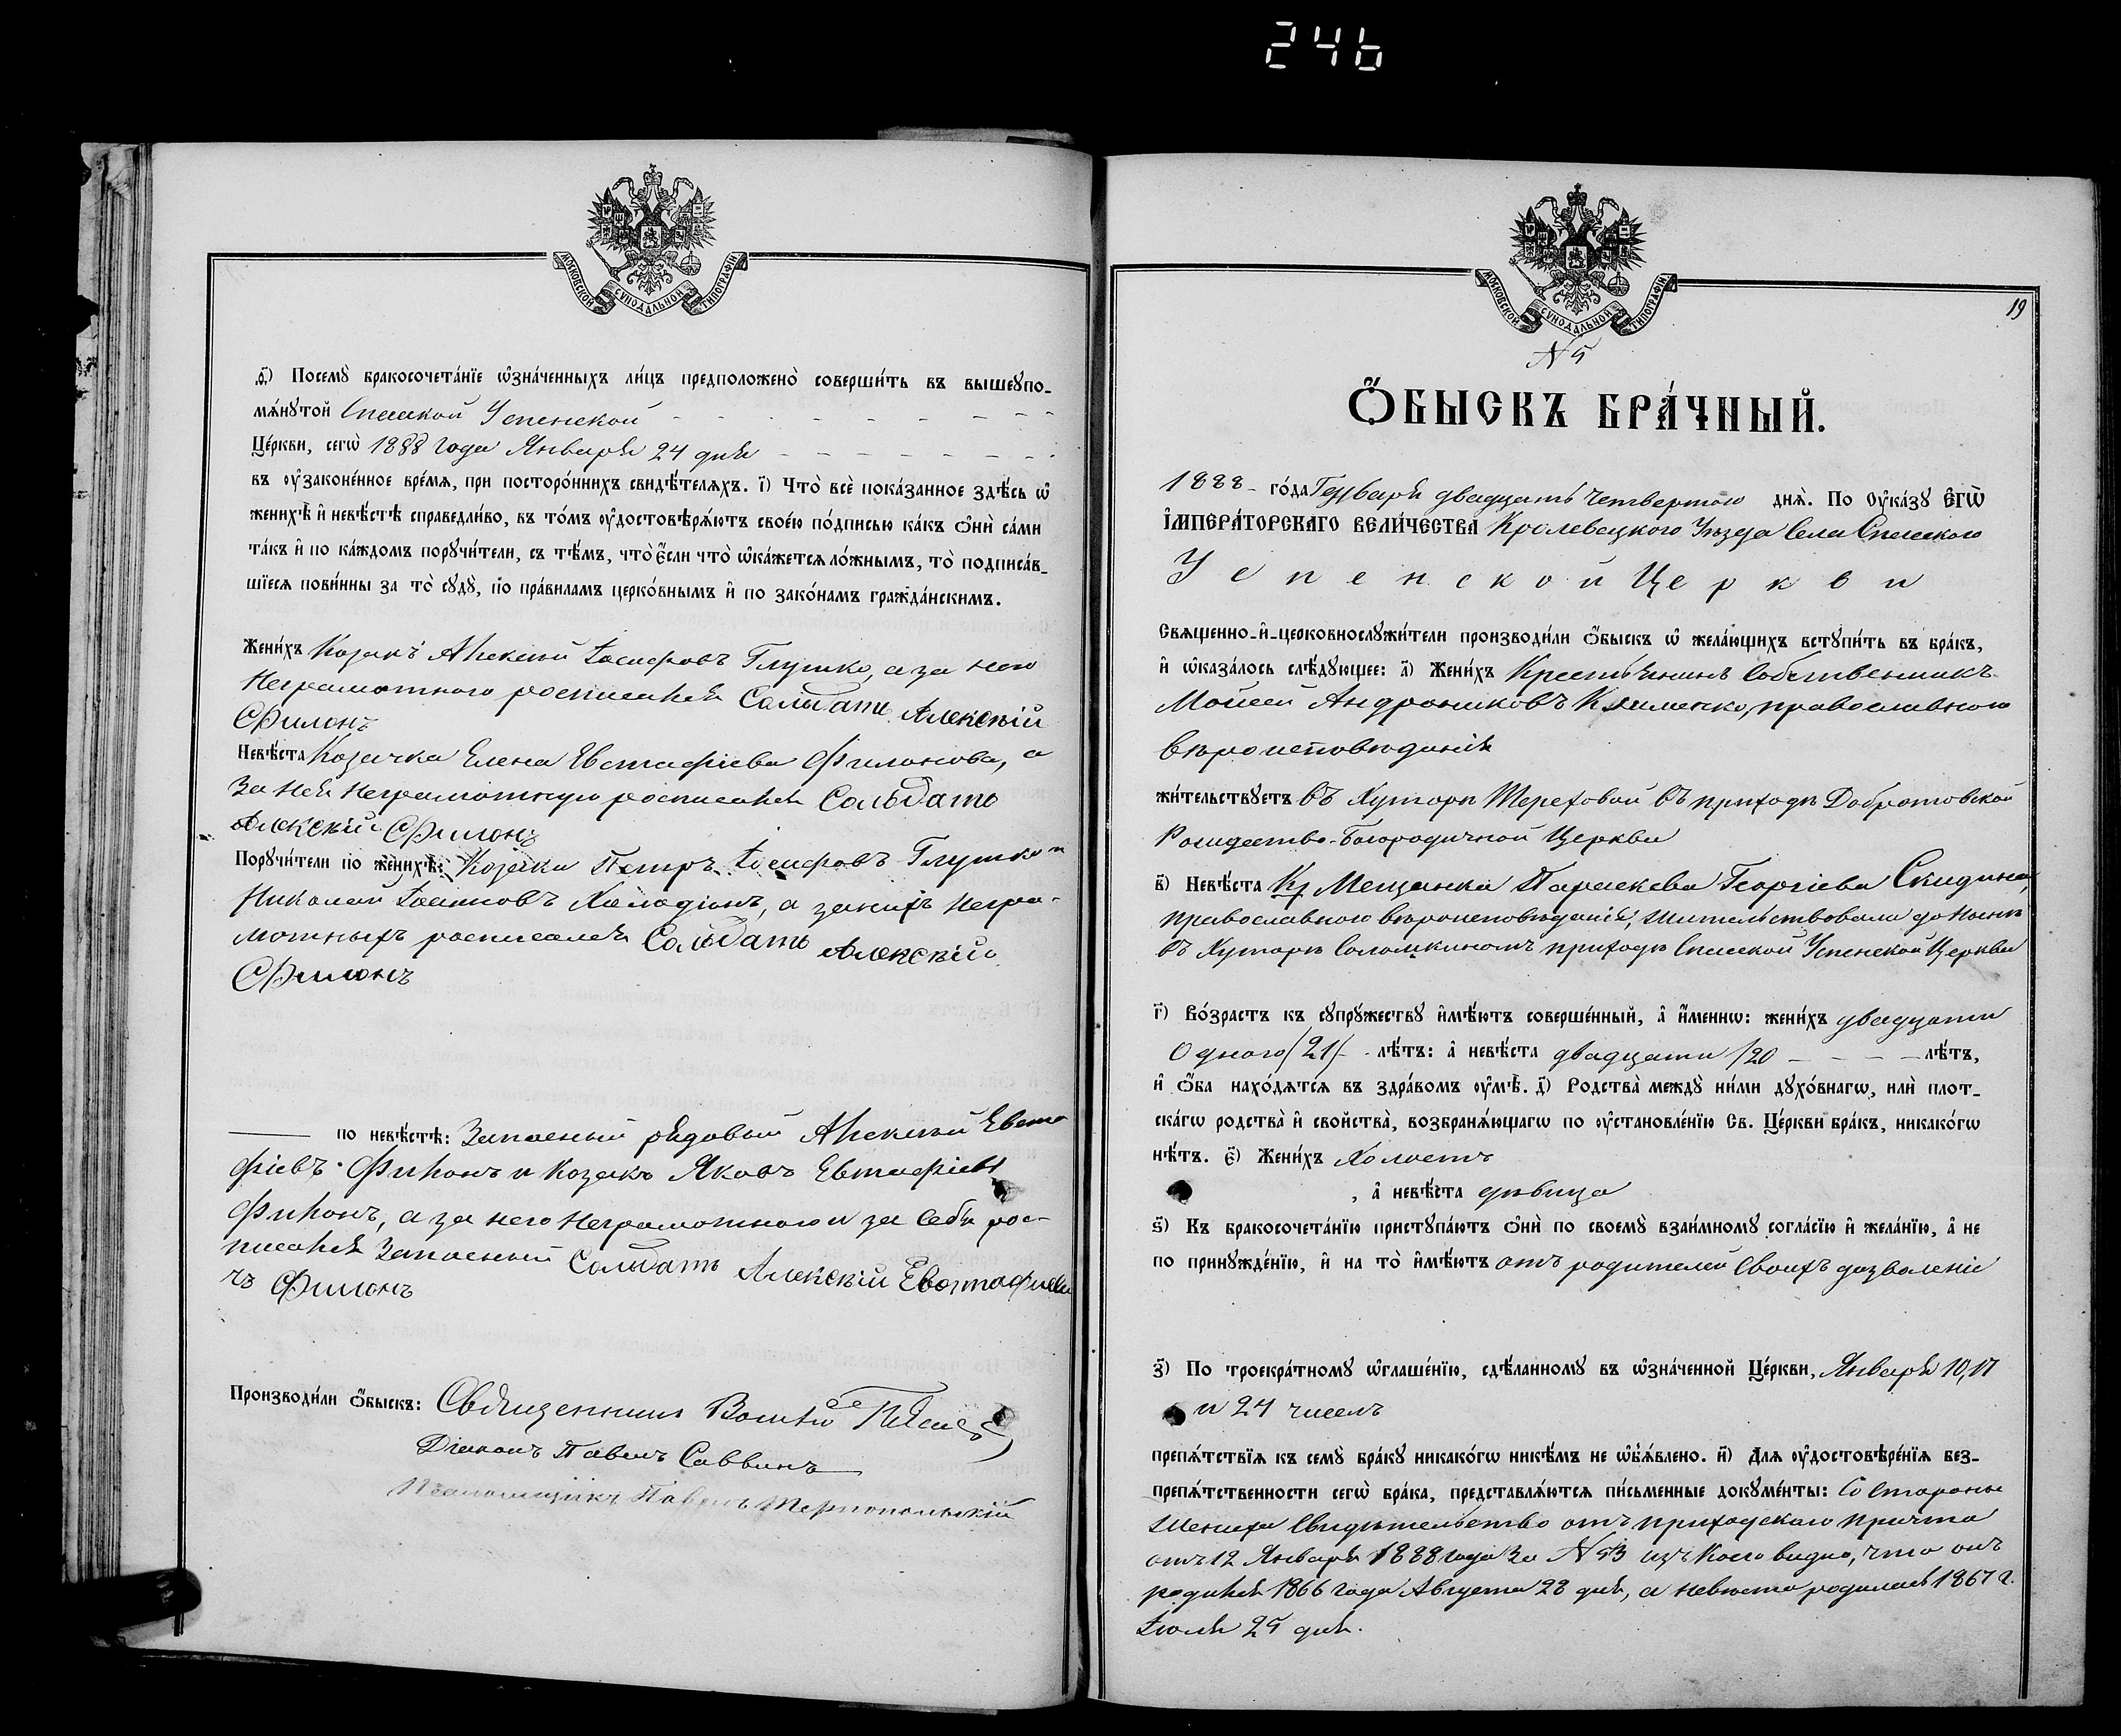 246
МОСКОВСКОЙ СѴНОДАЛЬНОЙ ТИПОГРАФІИ
.ѳ҃.) Посемꙋ̀ бракосочета́нїе ѡ҆зна́ченныхъ ли́цъ предположено̀ соверши́ть въ вышеꙋпо-
мѧ́нꙋтой Спасской Успенской
Це́ркви, сегѡ̀ 1888 года Января 24 дня
въ ᲂу҆законе́нное вре́мѧ, при посторо́ннихъ свидѣ́телѧхъ. і҃) Что̀ всѐ пока́занное здѣ́сь ѡ҆
женихѣ̀ и҆ невѣ́стѣ справедли́во, въ то́мъ ᲂу҆достовѣрѧ́ютъ свое́ю по́дписью ка́къ ѻ҆нѝ са́ми
та́къ и҆ по ка́ждомъ порꙋчи́тели, съ тѣ́мъ, что̀ є҆́сли что̀ ѡ҆ка́жетсѧ ло́жнымъ, то̀ подписа́в-
шїесѧ пови́нны за то̀ сꙋдꙋ̀, по пра́виламъ церко́внымъ и҆ по зако́намъ гражда́нскимъ.
Жени́хъ Козакъ Алексій Іосифовъ Глушко, а за него
неграмотного росписался Сольдатъ Алексѣй
Филонъ
Невѣ́ста Козачка Елена Евстафіева Филонова, а
за нея неграмотную росписался Сольдатъ
Алексѣй Филонъ
Порꙋчи́тели по женихѣ̀: Козаки Петръ Іосифовъ Глушко и
Николай Іоанновъ Холодіонъ, а за нихъ негра-
мотныхъ росписался Сольдатъ Алексѣй
Филонъ
по невѣ́стѣ: Запасный рядовый Алексій Евста
фіевъ Филонъ и Козакъ Яковъ Евстафіевъ
Филонъ, а за него неграмотного и за себя рос-
писался Запасный Сольдатъ Алексѣй Евстафиеви
чъ Филонъ
Производи́ли ѻ҆́быскъ: Священникъ
Діаконъ Павелъ Саввинъ
Псаломщикъ Павелъ Тернопольскій
19
МОСКОВСКОЙ СѴНОДАЛЬНОЙ ТИПОГРАФІИ
№ 5
Ѻ҆́БЫСКЪ БРА́ЧНЫЙ.
1888 го́да Генваря двадцать четвертого днѧ̀. По Оу҆ка́зꙋ Є҆ГѠ̀
І҆МПЕРА́ТОРСКАГО ВЕЛИ́ЧЕСТВА Кролевецкого Уѣзда Села Спасского
Успенской Церкви
Свѧщенно-и҆-церковнослꙋжи́тели производи́ли ѻ҆́быскъ ѡ҆ жела́ющихъ встꙋпи́ть въ бра́къ,
и҆ ѡ҆каза́лось слѣ́дꙋющее: а҃) Жени́хъ Крестьянинъ собственникъ
Моисей Андрониковъ Клименко, православного
вѣроисповѣданія
жи́тельствꙋетъ въ Хуторѣ Тереховой въ приходѣ Добротовской
Рождество-Богородичной Церкви
в҃) Невѣ́ста Мещанка Параскева Георгіева Скидина,
православного вѣроисповѣданія, жительствовала до нынѣ
въ Хуторѣ Соломкиномъ приходѣ Спасской Успенской Церкви
г҃) Во́зрастъ къ сꙋпрꙋ́жествꙋ и҆мѣ́ютъ соверше́нный, а҆ и҆́меннѡ: жени́хъ двадцати
одного /21/ лѣ́тъ: а҆ невѣ́ста двадцати /20 лѣ́тъ,
и҆ ѻ҆́ба нахо́дѧтсѧ въ здра́вомъ ᲂу҆мѣ̀. д҃) Родства̀ междꙋ̀ ни́ми дꙋхо́внагѡ, илѝ плот-
ска́гѡ родства̀ и҆ свойства̀, возбранѧ́ющагѡ по ᲂу҆становле́нїю Св. Це́ркви бра́къ, никако́гѡ
нѣ́тъ. є҃) Жени́хъ Холостъ
, а҆ невѣ́ста дѣвица
ѕ҃) Къ бракосочета́нїю пристꙋпа́ютъ ѻ҆нѝ по своемꙋ̀ взаи́мномꙋ согла́сїю и҆ жела́нїю, а҆ не
по принꙋжде́нїю, и҆ на то̀ и҆мѣ́ютъ отъ родителей своихъ дозволеніе
з҃) По троекра́тномꙋ ѡ҆глаше́нїю, сдѣ́ланномꙋ въ ѡ҆зна́ченной Це́ркви, Января 10, 17
и 24 чиселъ
препѧ́тствїѧ къ семꙋ̀ бра́кꙋ никако́гѡ никѣ́мъ не ѡ҆б̾ѧ́влено. и҃) Длѧ ᲂу҆достовѣре́нїѧ без-
препѧ́тственности сегѡ̀ бра́ка, представлѧ́ютсѧ пи́сьменные докꙋме́нты: Со стороны
жениха Свидѣтельство отъ приходскаго причта
отъ 12 Января 1888 года за № 53 изъ коего видно, что онъ
родился 1866 года Августа 28 дня, а невѣста родилась 1867 г.
Іюля 25 дня.